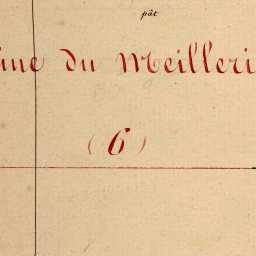 pât
ine du Meilleri
(6)